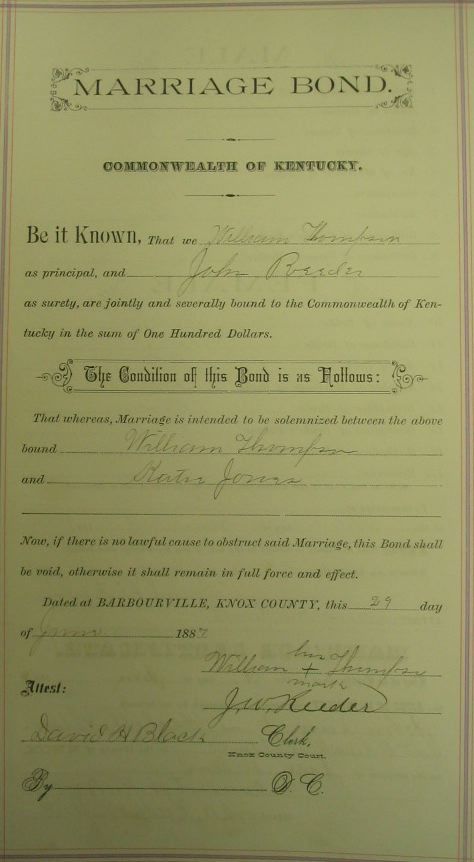 MARRIAGE BOND.
COMMONWEALTH OF KENTUCKY.
Be it Known, That we William Thompson
as principal, and John Reeder
as surety, are jointly and severally bound to the Commonwealth of Ken-
tucky in the sum of One Hundred Dollars.
The Condition of this Bond is as Follows:
That whereas, Marriage is intended to be solemnized between the above
bound William Thompson
and Katie Jones
Now, if there is no lawful cause to obstruct said Marriage, this Bond shall
be void, otherwise it shall remain in full force and effect.
Dated at BARBOURVILLE, KNOX COUNTY, this 29 day
of June 1887
his
William + Thompson
mark
Attest:
J.W. Reeder
David H Black Clerk,
Knox County Court.
By D. C.